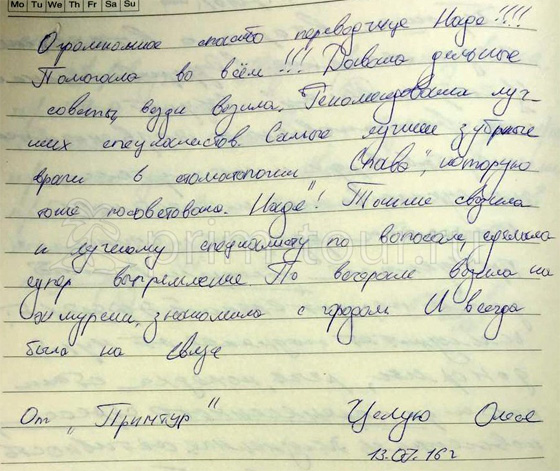 Mo Tu We Th Fr Sa Su
Огромнейшее спасибо переводчице Наде!!!!
Помогала во всём!!! Давала дельные
советы, везде возила. Рекомендовала луч-
ших специалистов. Самые лучшие зубные
врачи в стоматологии "Слава", которую
тоже посоветовала "Надя"! Также сводила
к лучшему специалисту по волосам, сделала
супер выпрямление. По вечерам возила на
экскурсии, знакомила с городом И всегда
была на связи
От "Примтур" Целую Олеся
13.07.16г
primtour.ru